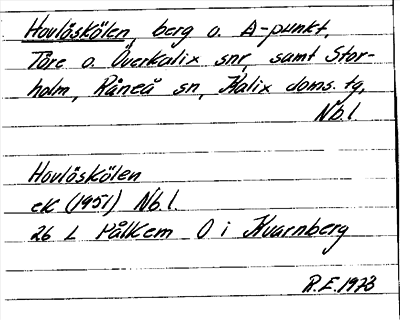 Hovlöskölen, berg o. A-punkt,
Töre o. Överkalix snr, samt Stor-
holm, Råneå sn, Kalix doms. tg,
Nb.l
Hovlöskölen
ek (1951) Nb.l.
26 L Pålkem O i Kvarnberg
R.E. 1973